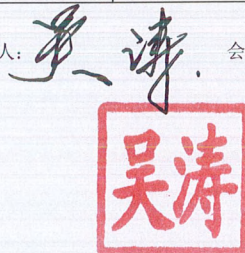 人: 吴涛. 会
吴涛